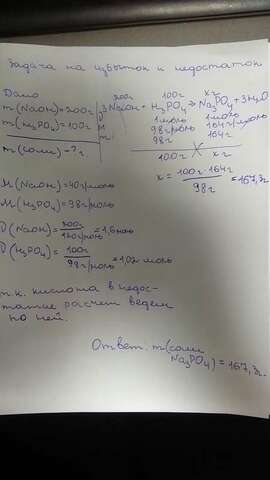 Задача на избыток и недостаток
Дано
m(NaOH)=200г
m(H3PO4)=100г
m(соли)-?г
200г 100г xг
3NaOH + H3PO4 → Na3PO4+3H2O
1моль 1моль
98г/моль 164г/моль
98г 164г
100г xг
x = 100г·164г / 98г = 167,3г
M(NaOH)=40г/моль
M(H3PO4)=98г/моль
ν(NaOH)= 200г / 120г/моль =1,6моль
ν(H3PO4)= 100г / 98г/моль =1,02 моль
т.к. кислота в недос-
татке расчет ведем
по ней.
Ответ. m(соли
Na3PO4)=167,3г.